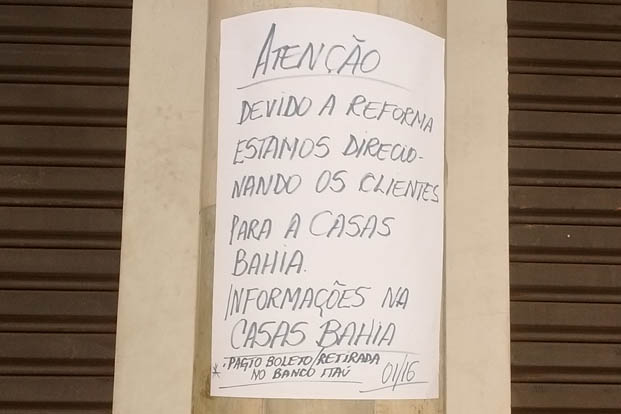 ATENÇÃO
DEVIDO A REFORMA
ESTAMOS DIRECIO-
NANDO OS CLIENTES
PARA A CASAS
BAHIA.
INFORMAÇÕES NA
CASAS BAHIA
* PAGTO BOLETO/RETIRADA
NO BANCO ITAÚ
01/16